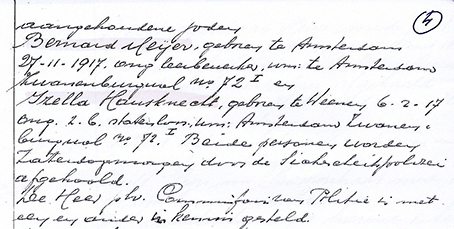 4
aangehoudene joden
Bernard Meijer, geboren te Amsterdam
27-11-1917. ong. leerbewerker, won: te Amsterdam
Zwanenburgwal no 72 I en
Izella Hausknecht, geboren te Weenen 6-2-17
ong. z.b. statenloos, won: Amsterdam Zwanen-
burgwal no 72. I Beide personen worden
Zaterdagmorgen door de Sicherheitspolizei
afgehaald.
De Heer plv. Commissaris van Politie is met
een en ander in kennis gesteld.